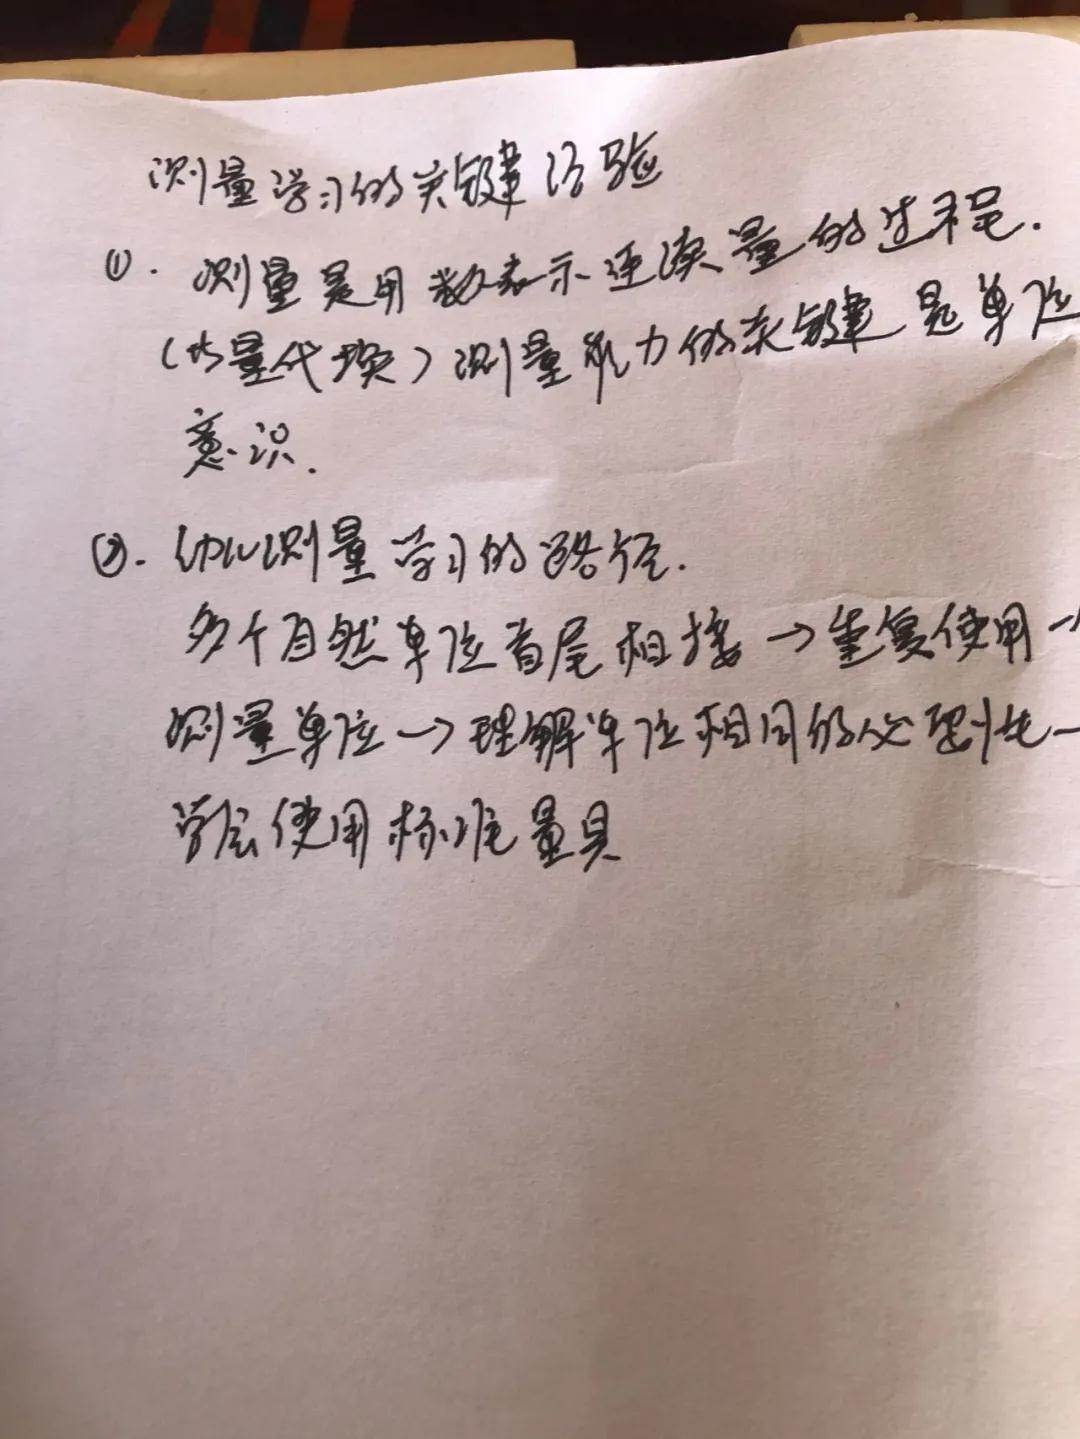 测量学习的关键经验
①. 测量是用数表示连续量的过程.
(等量代换)测量能力的关键是单位
意识.
②. 幼儿测量学习的路径.
多个自然单位首尾相接→重复使用一
测量单位→理解单位相同的必要性→
学会使用标准量具